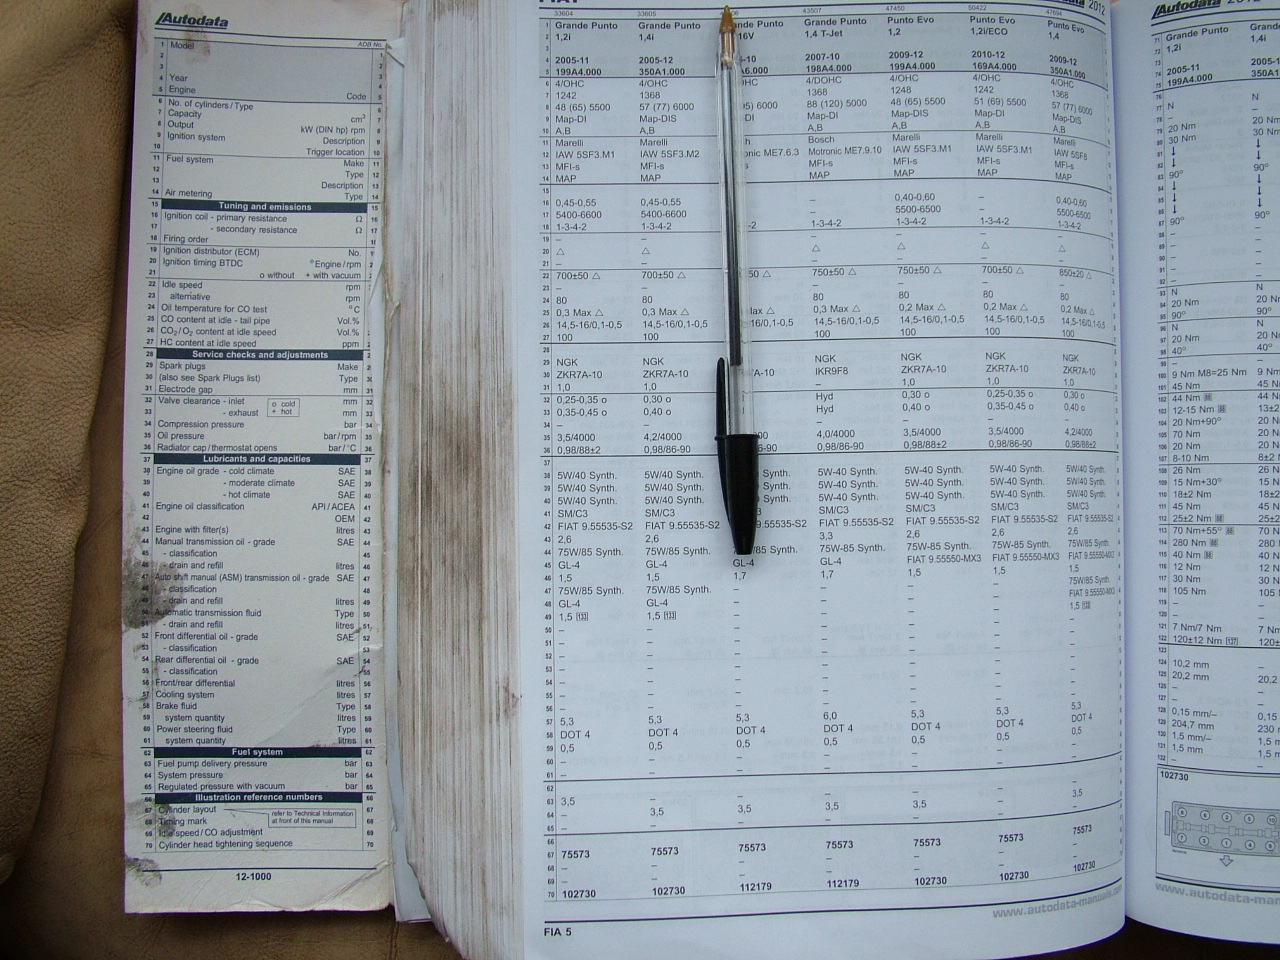 Autodata
1 Model ADB No. 1
2 2
3 3
4 Year 4
5 Engine Code 5
6 No. of cylinders / Type 6
7 Capacity cm³ 7
8 Output kW (DIN hp) rpm 8
9 Ignition system Description 9
10 Trigger location 10
11 Fuel system Make 11
12 Type 12
13 Description 13
14 Air metering Type 14
15 Tuning and emissions 15
16 Ignition coil - primary resistance Ω 16
17 - secondary resistance Ω
18 Firing order
19 Ignition distributor (ECM) No.
20 Ignition timing BTDC °Engine/rpm
21 o without + with vacuum
22 Idle speed rpm
23 alternative rpm
24 Oil temperature for CO test °C
25 CO content at idle - tail pipe Vol.%
26 CO₂/O₂ content at idle speed Vol.%
27 HC content at idle speed ppm
28 Service checks and adjustments
29 Spark plugs Make
30 (also see Spark Plugs list) Type
31 Electrode gap mm
32 Valve clearance - inlet o cold mm 32
33 - exhaust + hot mm 33
34 Compression pressure bar 34
35 Oil pressure bar/rpm 35
36 Radiator cap/thermostat opens bar/°C 36
37 Lubricants and capacities 37
38 Engine oil grade - cold climate SAE 38
39 - moderate climate SAE 39
40 - hot climate SAE 40
41 Engine oil classification API/ACEA 41
42 OEM 42
43 Engine with filter(s) litres 43
44 Manual transmission oil - grade SAE 44
45 - classification 45
46 - drain and refill litres 46
47 Auto shift manual (ASM) transmission oil - grade SAE 47
48 - classification 48
49 - drain and refill litres 49
50 Automatic transmission fluid Type 50
51 - drain and refill litres 51
52 Front differential oil - grade SAE 52
53 - classification 53
54 Rear differential oil - grade SAE 54
55 - classification 55
56 Front/rear differential litres 56
57 Cooling system litres 57
58 Brake fluid Type 58
59 system quantity litres 59
60 Power steering fluid Type 60
61 system quantity litres 61
62 Fuel system 62
63 Fuel pump delivery pressure bar 63
64 System pressure bar 64
65 Regulated pressure with vacuum bar 65
66 Illustration reference numbers 66
67 Cylinder layout refer to Technical Information 67
68 Timing mark at front of this manual 68
69 Idle speed/CO adjustment 69
70 Cylinder head tightening sequence 70
12-1000
FIAT 2012
33604 33605 43507 47450 50422 47694
1 Grande Punto Grande Punto Punto Grande Punto Punto Evo Punto Evo Punto Evo
2 1,2i 1,4i 16V 1,4 T-Jet 1,2 1,2i/ECO 1,4
3
4 2005-11 2005-12 -10 2007-10 2009-12 2010-12 2009-12
5 199A4.000 350A1.000 A6.000 198A4.000 199A4.000 169A4.000 350A1.000
6 4/OHC 4/OHC OHC 4/DOHC 4/OHC 4/OHC 4/OHC
7 1242 1368 1368 1248 1242 1368
8 48 (65) 5500 57 (77) 6000 95) 6000 88 (120) 5000 48 (65) 5500 51 (69) 5500 57 (77) 6000
9 Map-DI Map-DIS DI Map-DI Map-DI Map-DI Map-DIS
10 A,B A,B A,B A,B A,B A,B
11 Marelli Marelli h Bosch Marelli Marelli Marelli
12 IAW 5SF3.M1 IAW 5SF3.M2 tronic ME7.6.3 Motronic ME7.9.10 IAW 5SF3.M1 IAW 5SF3.M1 IAW 5SF8
13 MFI-s MFI-s s MFI-s MFI-s MFI-s MFI-s
14 MAP MAP MAP MAP MAP MAP
15
16 0,45-0,55 0,45-0,55 – 0,40-0,60 – 0,40-0,60
17 5400-6600 5400-6600 – 5500-6500 – 5500-6500
18 1-3-4-2 1-3-4-2 -2 1-3-4-2 1-3-4-2 1-3-4-2 1-3-4-2
19 – – – – – –
20 △ △ △ △ △ △
21 – – – – – –
22 700±50 △ 700±50 △ 50 △ 750±50 △ 750±50 △ 700±50 △ 850±20 △
23 – – – – – –
24 80 80 80 80 80 80
25 0,3 Max △ 0,3 Max △ ax △ 0,3 Max △ 0,2 Max △ 0,2 Max △ 0,2 Max △
26 14,5-16/0,1-0,5 14,5-16/0,1-0,5 16/0,1-0,5 14,5-16/0,1-0,5 14,5-16/0,1-0,5 14,5-16/0,1-0,5 14,5-16/0,1-0,5
27 100 100 100 100 100 100
28
29 NGK NGK NGK NGK NGK NGK
30 ZKR7A-10 ZKR7A-10 A-10 IKR9F8 ZKR7A-10 ZKR7A-10 ZKR7A-10
31 1,0 1,0 – 1,0 1,0 1,0
32 0,25-0,35 o 0,30 o Hyd 0,30 o 0,25-0,35 o 0,30 o
33 0,35-0,45 o 0,40 o Hyd 0,40 o 0,35-0,45 o 0,40 o
34 – – – – – –
35 3,5/4000 4,2/4000 000 4,0/4000 3,5/4000 3,5/4000 4,2/4000
36 0,98/88±2 0,98/86-90 6-90 0,98/86-90 0,98/88±2 0,98/86-90 0,98/88±2
37
38 5W/40 Synth. 5W/40 Synth. ynth. 5W-40 Synth. 5W-40 Synth. 5W-40 Synth. 5W/40 Synth.
39 5W/40 Synth. 5W/40 Synth. ynth. 5W-40 Synth. 5W-40 Synth. 5W-40 Synth. 5W/40 Synth.
40 5W/40 Synth. 5W/40 Synth. ynth. 5W-40 Synth. 5W-40 Synth. 5W-40 Synth. 5W/40 Synth.
41 SM/C3 SM/C3 3 SM/C3 SM/C3 SM/C3 SM/C3
42 FIAT 9.55535-S2 FIAT 9.55535-S2 9.55535-S2 FIAT 9.55535-S2 FIAT 9.55535-S2 FIAT 9.55535-S2 FIAT 9.55535-S2
43 2,6 2,6 3,3 2,6 2,6 2,6
44 75W/85 Synth. 75W/85 Synth. 75W/85 Synth. 75W-85 Synth. 75W-85 Synth. 75W-85 Synth. 75W/85 Synth.
45 GL-4 GL-4 GL-4 GL-4 FIAT 9.55550-MX3 FIAT 9.55550-MX3 FIAT 9.55550-MX3
46 1,5 1,5 1,7 1,7 1,5 1,5 1,5
47 75W/85 Synth. 75W/85 Synth. – – – – 75W/85 Synth.
48 GL-4 GL-4 – – – – FIAT 9.55550-MX3
49 1,5 [133] 1,5 [133] – – – – 1,5 [133]
50 – – – – – – –
51 – – – – – – –
52 – – – – – – –
53 – – – – – – –
54 – – – – – – –
55 – – – – – – –
56 – – – – – – –
57 5,3 5,3 5,3 6,0 5,3 5,3 5,3
58 DOT 4 DOT 4 DOT 4 DOT 4 DOT 4 DOT 4 DOT 4
59 0,5 0,5 0,5 0,5 0,5 0,5 0,5
60 – – – – – – –
61 – – – – – – –
62
63 3,5 – – – – – 3,5
64 – 3,5 3,5 3,5 3,5 – –
65 – – – – – – –
66
67 75573 75573 75573 75573 75573 75573 75573
68 – – – – – – –
69 – – – – – – –
70 102730 102730 112179 112179 102730 102730 102730
www.autodata-manuals.com
FIA 5
Autodata
71 Grande Punto Grande
72 1,2i 1,4i
74 2005-11 2005-1
75 199A4.000 350A1
77 N N
79 20 Nm 20 Nm
80 30 Nm 30 Nm
90° 90°
90° 90°
93 N N
94 20 Nm 20 Nm
95 90° 90°
96 N N
97 20 Nm 20 Nm
98 40° 40°
100 9 Nm M8=25 Nm 9 Nm
101 45 Nm 45 Nm
102 44 Nm 44 Nm
103 12-15 Nm 13±2
104 20 Nm+90° 20 Nm
105 70 Nm 20 Nm
106 20 Nm 20 Nm
107 8-10 Nm 8±2 N
108 26 Nm 26 Nm
109 15 Nm+30° 15 N
110 18±2 Nm 18±2
111 45 Nm 45 Nm
112 25±2 Nm 25±2
113 70 Nm+55° 70 N
114 280 Nm 280
115 40 Nm 40 N
116 12 Nm 12 N
117 30 Nm 30 N
118 105 Nm 105
121 7 Nm/7 Nm 7 Nm
122 120±12 Nm [137] 120±
124 10,2 mm
125 20,2 mm 20,2
0,15 mm/– 0,15
204,7 mm 230
1,5 mm/– 1,5 m
1,5 mm 1,5 m
102730
www.autodata-man